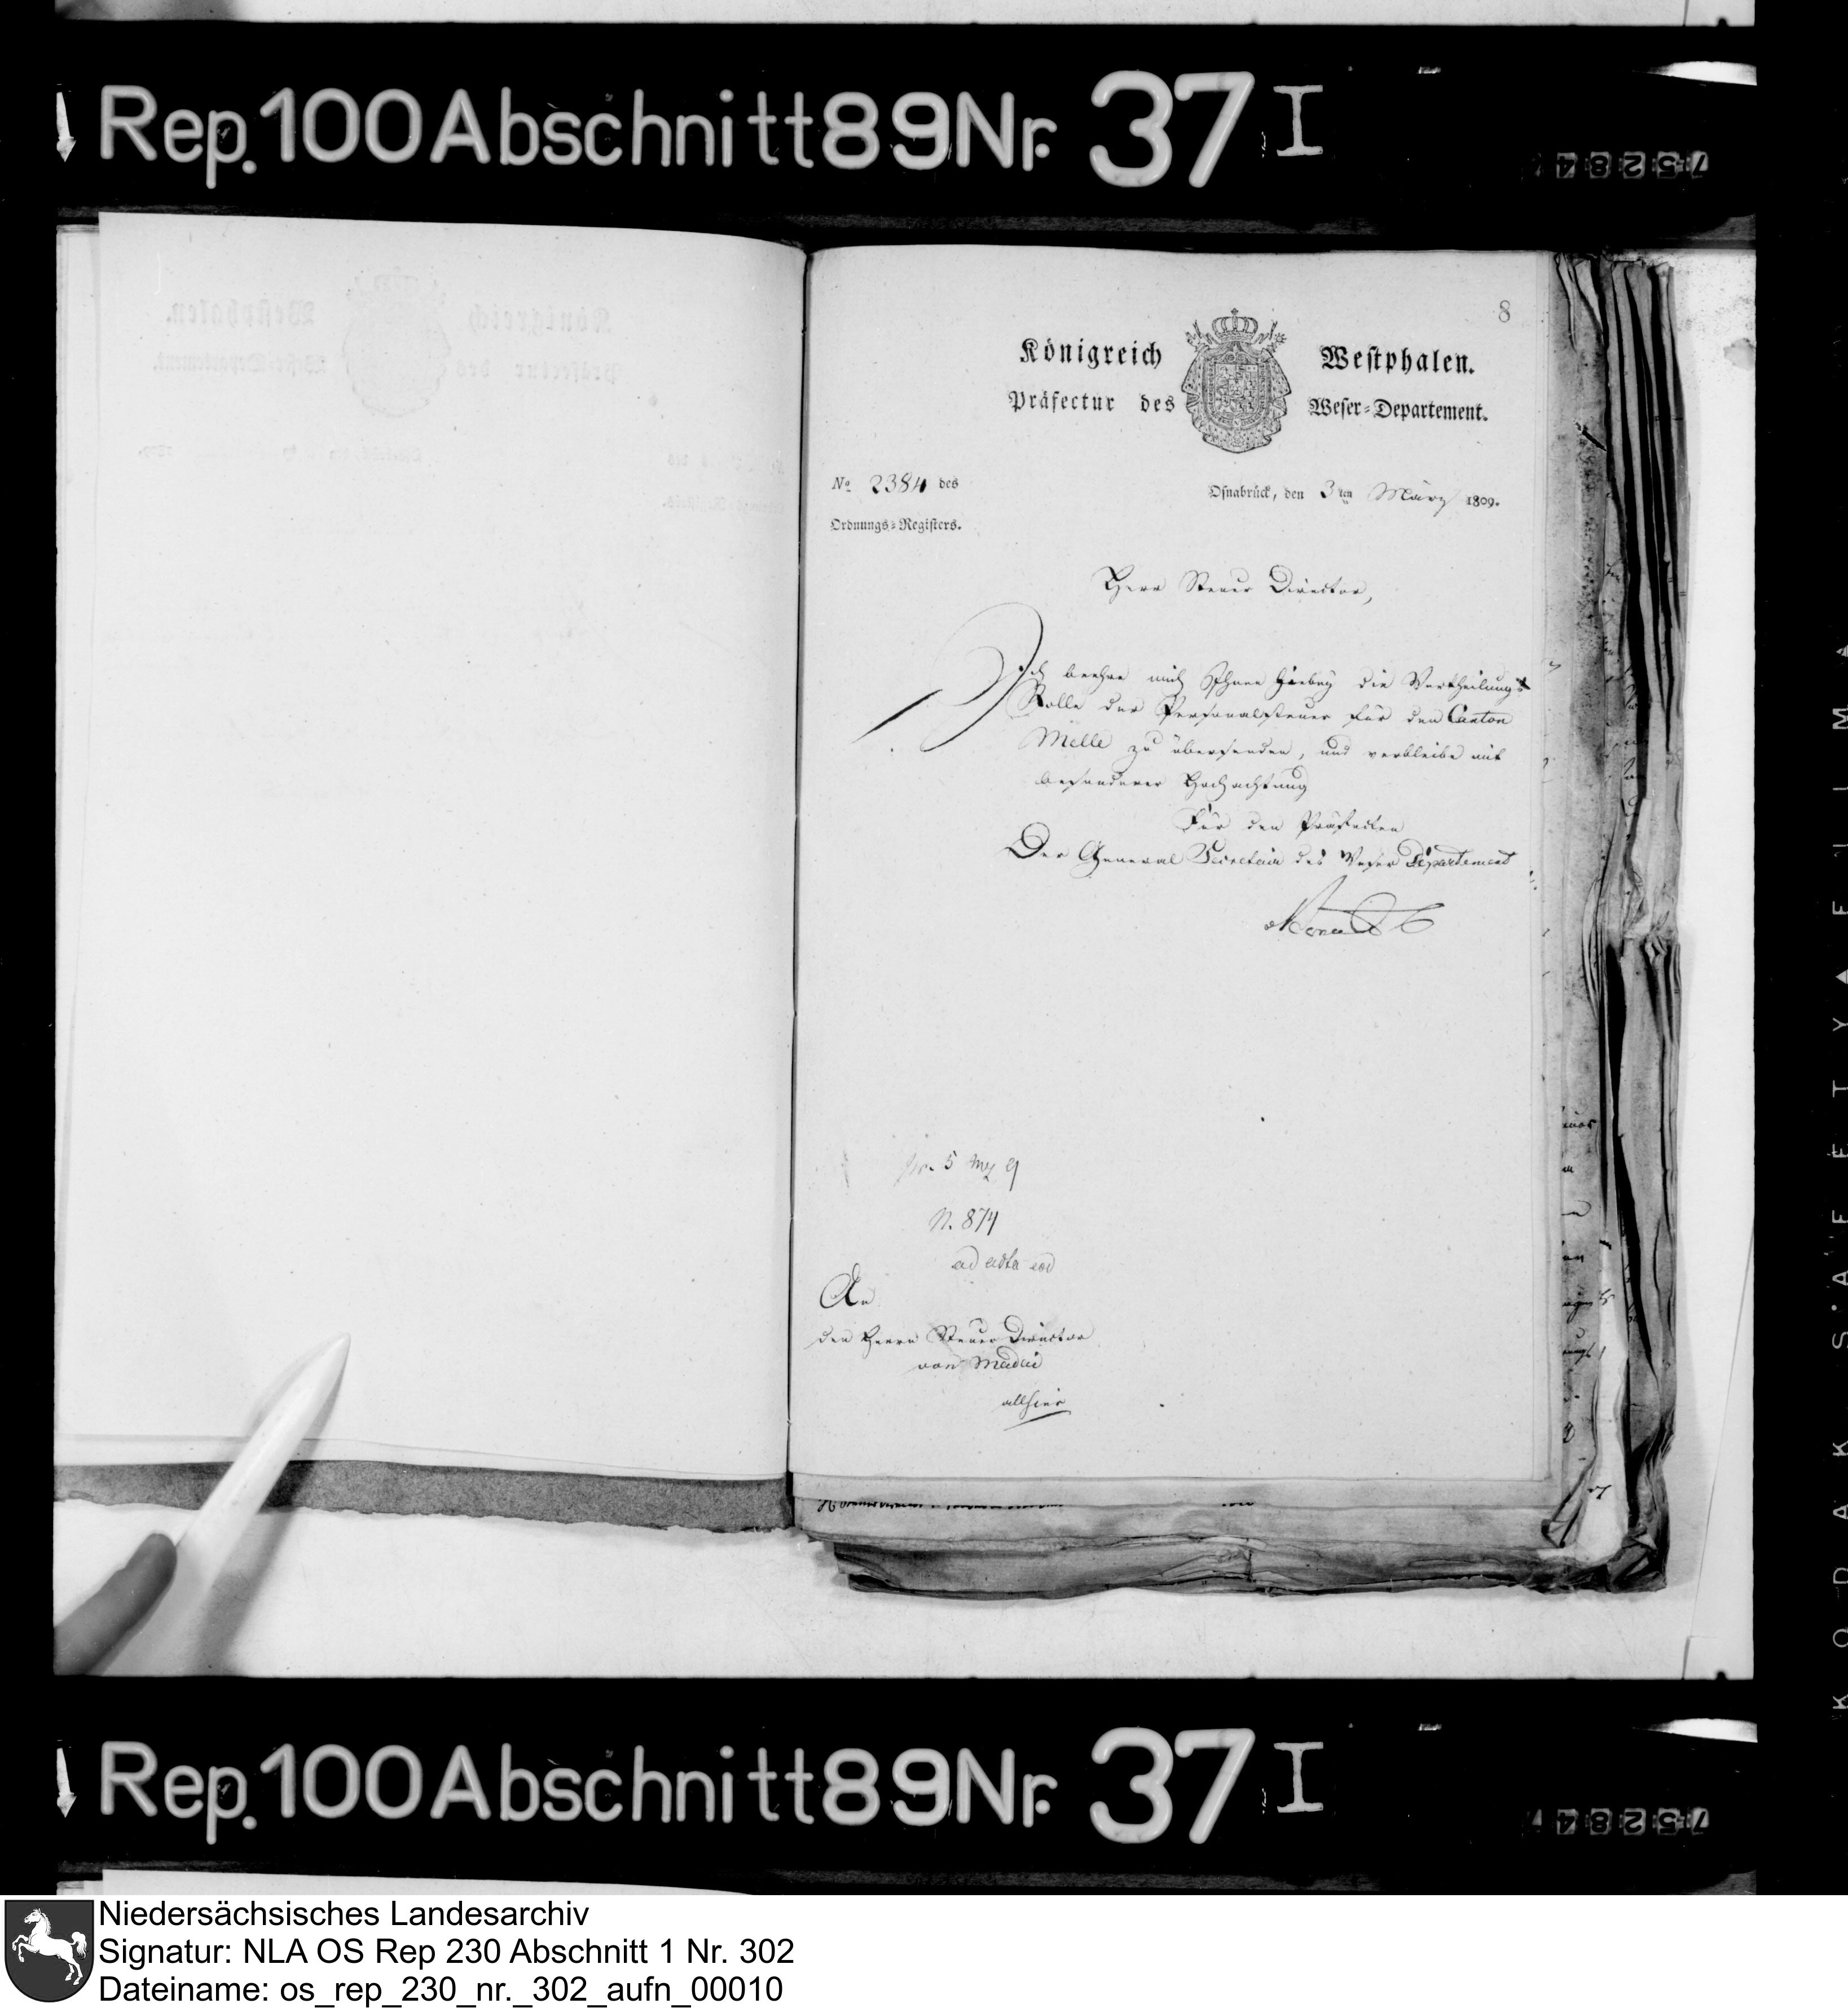 Rep. 100 Abschnitt 89 Nr. 37 I
75284
8
Königreich Westphalen.
Präfectur des Weser-Departement.
No 2384 des
Ordnungs-Registers.
Osnabrück, den 3ten März 1809.
Herr Steuer Director,
Ich beehre mich Ihnen hiebey die Vertheilungs
Rolle der Personalsteuer für den Canton
Melle zu übersenden, und verbleibe mit
besonderer Hochachtung
Für den Präfecten
Der General Secretair des Weser Departements
pr. 5 Mz 9
N. 874
ad acta
An
den Herrn Steuer Director
von
allhier
KODAK SAFETY FILM
Rep. 100 Abschnitt 89 Nr. 37 I
75284
Niedersächsisches Landesarchiv
Signatur: NLA OS Rep 230 Abschnitt 1 Nr. 302
Dateiname: os_rep_230_nr._302_aufn_00010